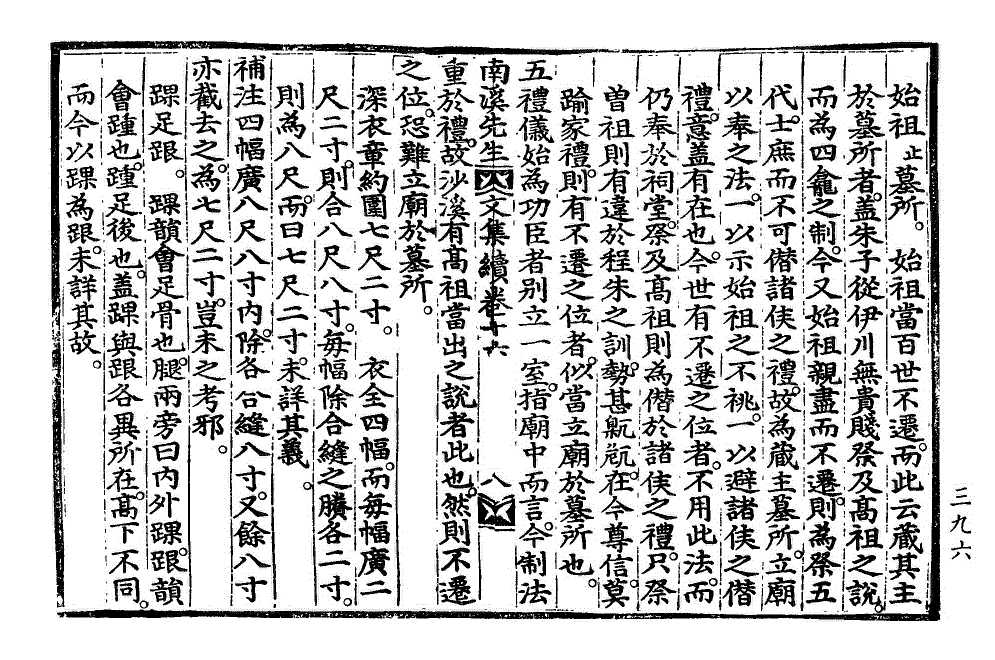 始祖止墓所。　始祖當百世不遷。而此云藏其主
於墓所者。盖朱子從伊川無貴賤祭及高祖之說。
而為四龕之制。今又始祖親盡而不遷。則為祭五
代。士庶而不可僣諸侯之禮。故為藏主墓所。立廟
以奉之法。一以示始祖之不祧。一以避諸侯之僣
禮。意盖有在也。今世有不遷之位者。不用此法。而
仍奉於祠堂。祭及高祖則為僣於諸侯之禮。只祭
曾祖則有違於程朱之訓。勢甚臲卼。在今尊信。莫
踰家禮。則有不遷之位者。似當立廟於墓所也。
五禮儀始為功臣者别立一室。指廟中而言。今制法
南溪先生文集續卷十六　八
重於禮。故沙溪有高祖當出之說者此也。然則不遷
之位。恐難立廟於墓所。
深衣章約圍七尺二寸。　衣全四幅。而每幅廣二
尺二寸。則合八尺八寸。每幅除合縫之賸各二寸。
則為八尺。而曰七尺二寸。未詳其義。
補注四幅廣八尺八寸內。除各合縫八寸。又餘八寸
亦截去之。為七尺二寸。豈未之考邪。
踝足跟。　踝韻會足骨也。腿兩旁曰內外踝。跟韻
會踵也。踵足後也。盖踝與跟各異所在。高下不同。
而今以踝為跟。未詳其故。
三九六